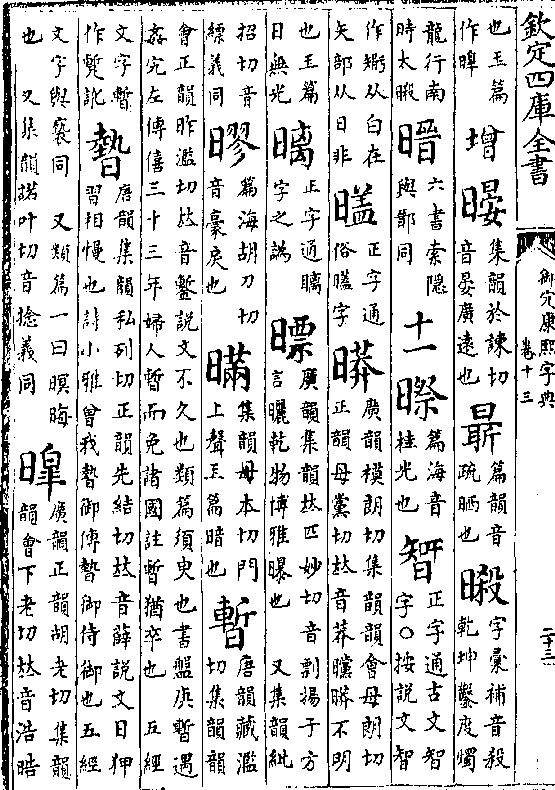 欽定四庫全書
御定康熙字典
卷十三
二十三
也玉篇
作暭
增
集韻於諫切
音晏廣遠也
篇韻音
疏晒也
字彙補音殺
乾坤鑿度燭
龍行南
時太暇
六書索隱
與鄙同
十一
暩
篇海音
桂光也
正字通古文智
字○按說文智
作𥏼从白在
矢部从日非
正字通
俗字
㬒
廣韻模朗切集韻韻會母朗切
正韻母黨切𠀤音莽矘㬒不明
也玉篇
日無光
正字通瞝
字之譌
㬓
廣韻集韻𠀤匹妙切音剽揚子方
言曬乾物博雅曝也 又集韻紕
招切音
縹義同
㬔
篇海胡刀切
音豪戾也
暪
集韻母本切門
上聲玉篇暗也
暫
唐韻藏濫
切集韻韻
會正韻昨濫切𠀤音鏨說文不久也類篇須臾也書盤庚暫遇
姦宄左傳僖三十三年婦人暫而免諸國註暫猶卒也 五經
文字暫
作蹔訛
暬
唐韻集韻私列切正韻先結切𠀤音薛說文日狎
習相慢也詩小雅曾我暬御傳暬御侍御也五經
文字與褻同 又類篇一曰暝晦
也 又集韻諾叶切音捻義同
暭
廣韻正韻胡老切集韻
韻會下老切𠀤音浩晧